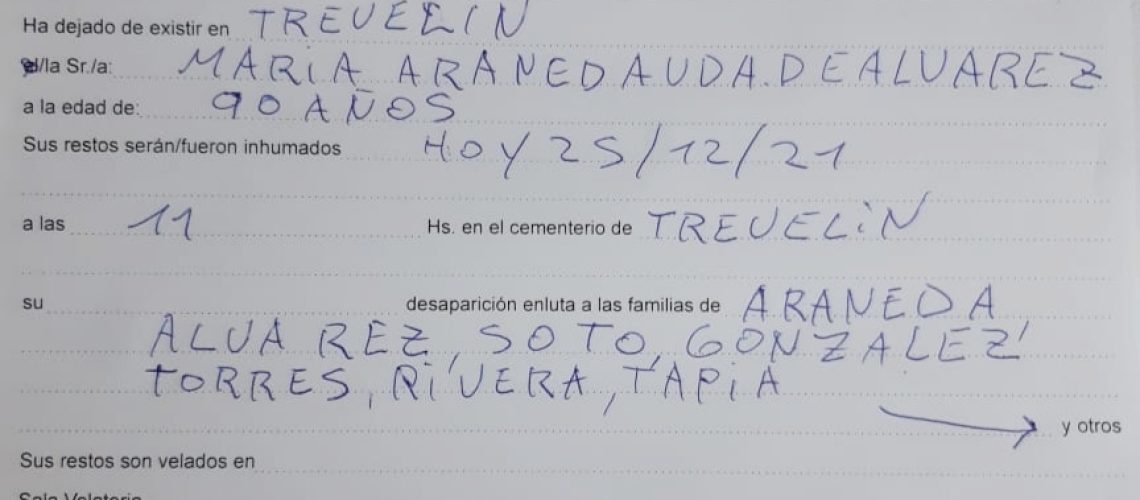 Ha dejado de existir en TREVELIN
el/la Sr./a: MARIA ARANEDA VDA. DE ALVAREZ
a la edad de: 90 AÑOS
Sus restos serán/fueron inhumados HOY 25/12/21
a las 11 Hs. en el cementerio de TREVELIN
su desaparición enluta a las familias de ARANEDA
ALVAREZ, SOTO, GONZALEZ,
TORRES, RIVERA, TAPIA
y otros
Sus restos son velados en
Sala Velatoria